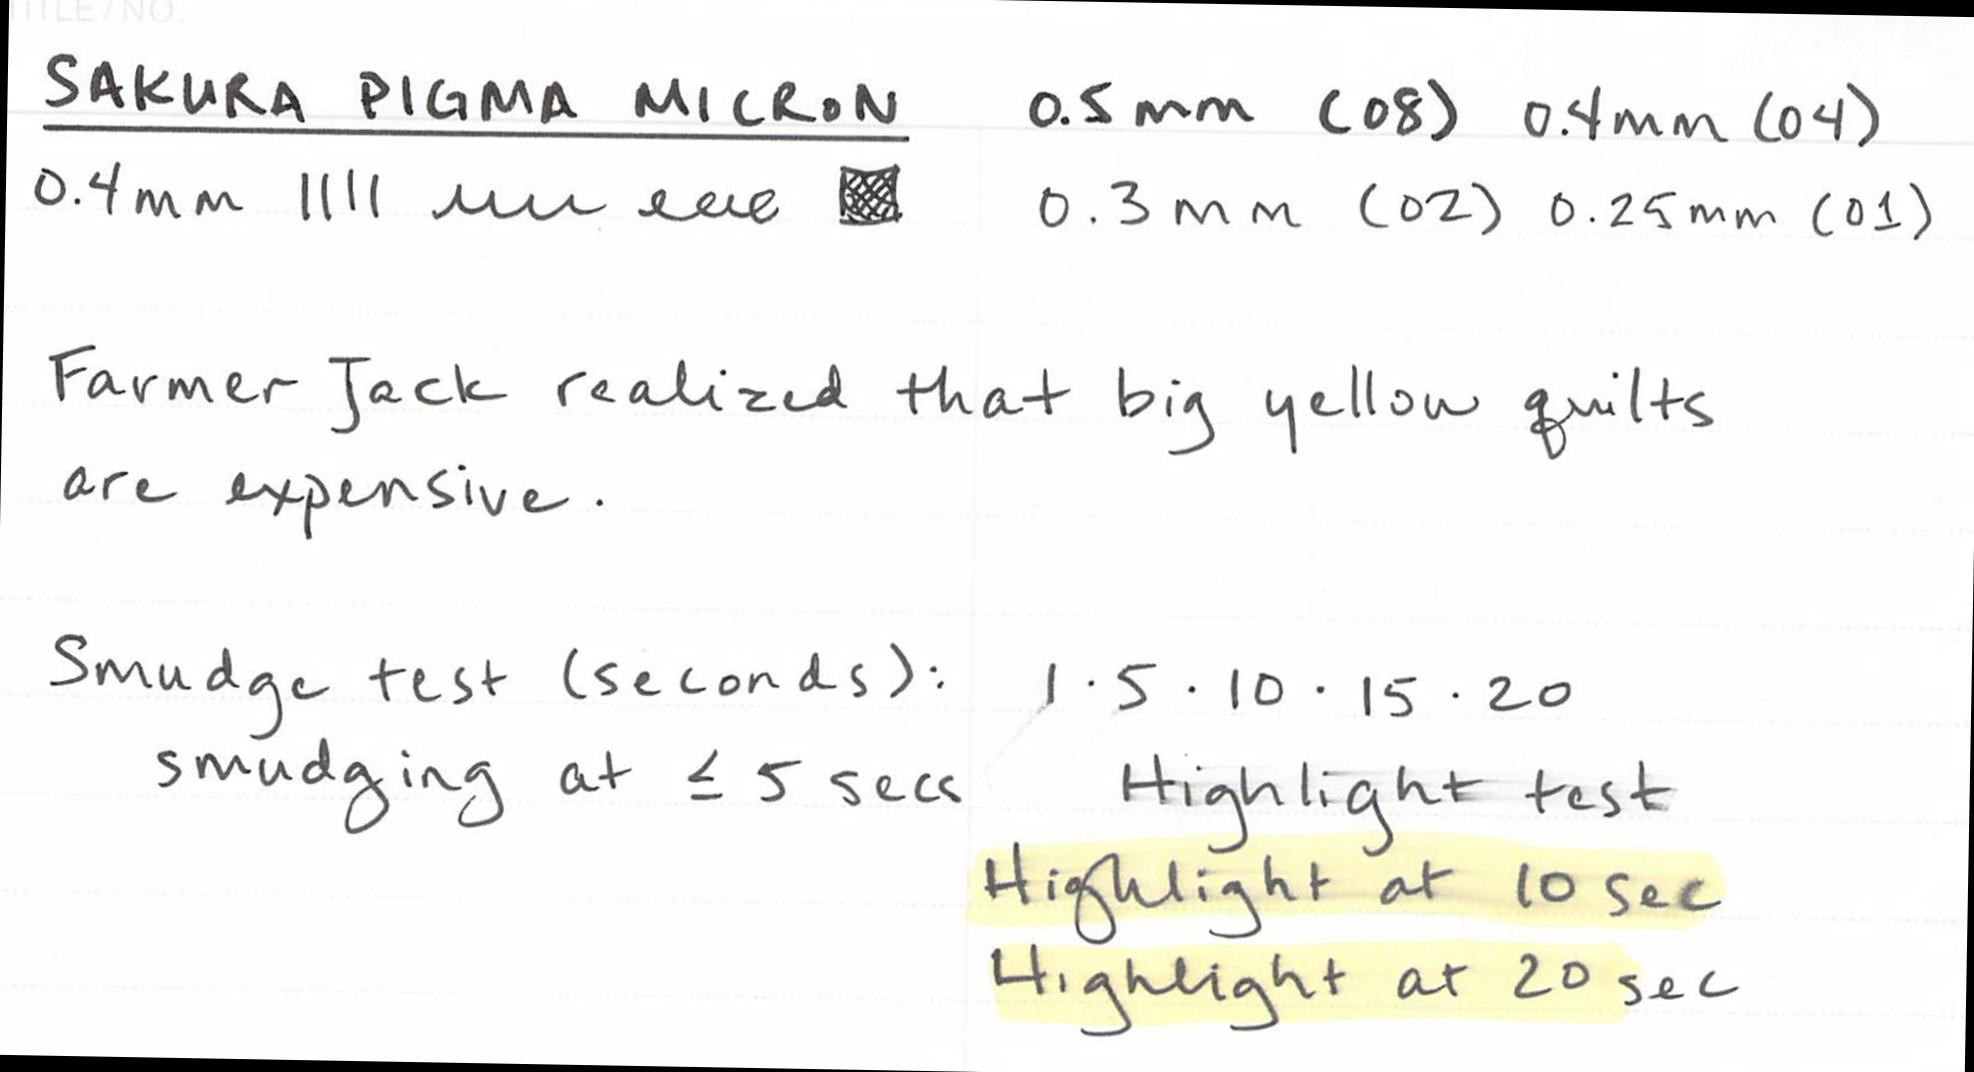 TITLE/NO.
SAKURA PIGMA MICRON
0.5mm (08) 0.4mm (04)
0.4mm
0.3mm (02) 0.25mm (01)
Farmer Jack realized that big yellow quilts
are expensive.
Smudge test (seconds): 1 · 5 · 10 · 15 · 20
smudging at ≤ 5 secs
Highlight test
Highlight at 10 sec
Highlight at 20 sec